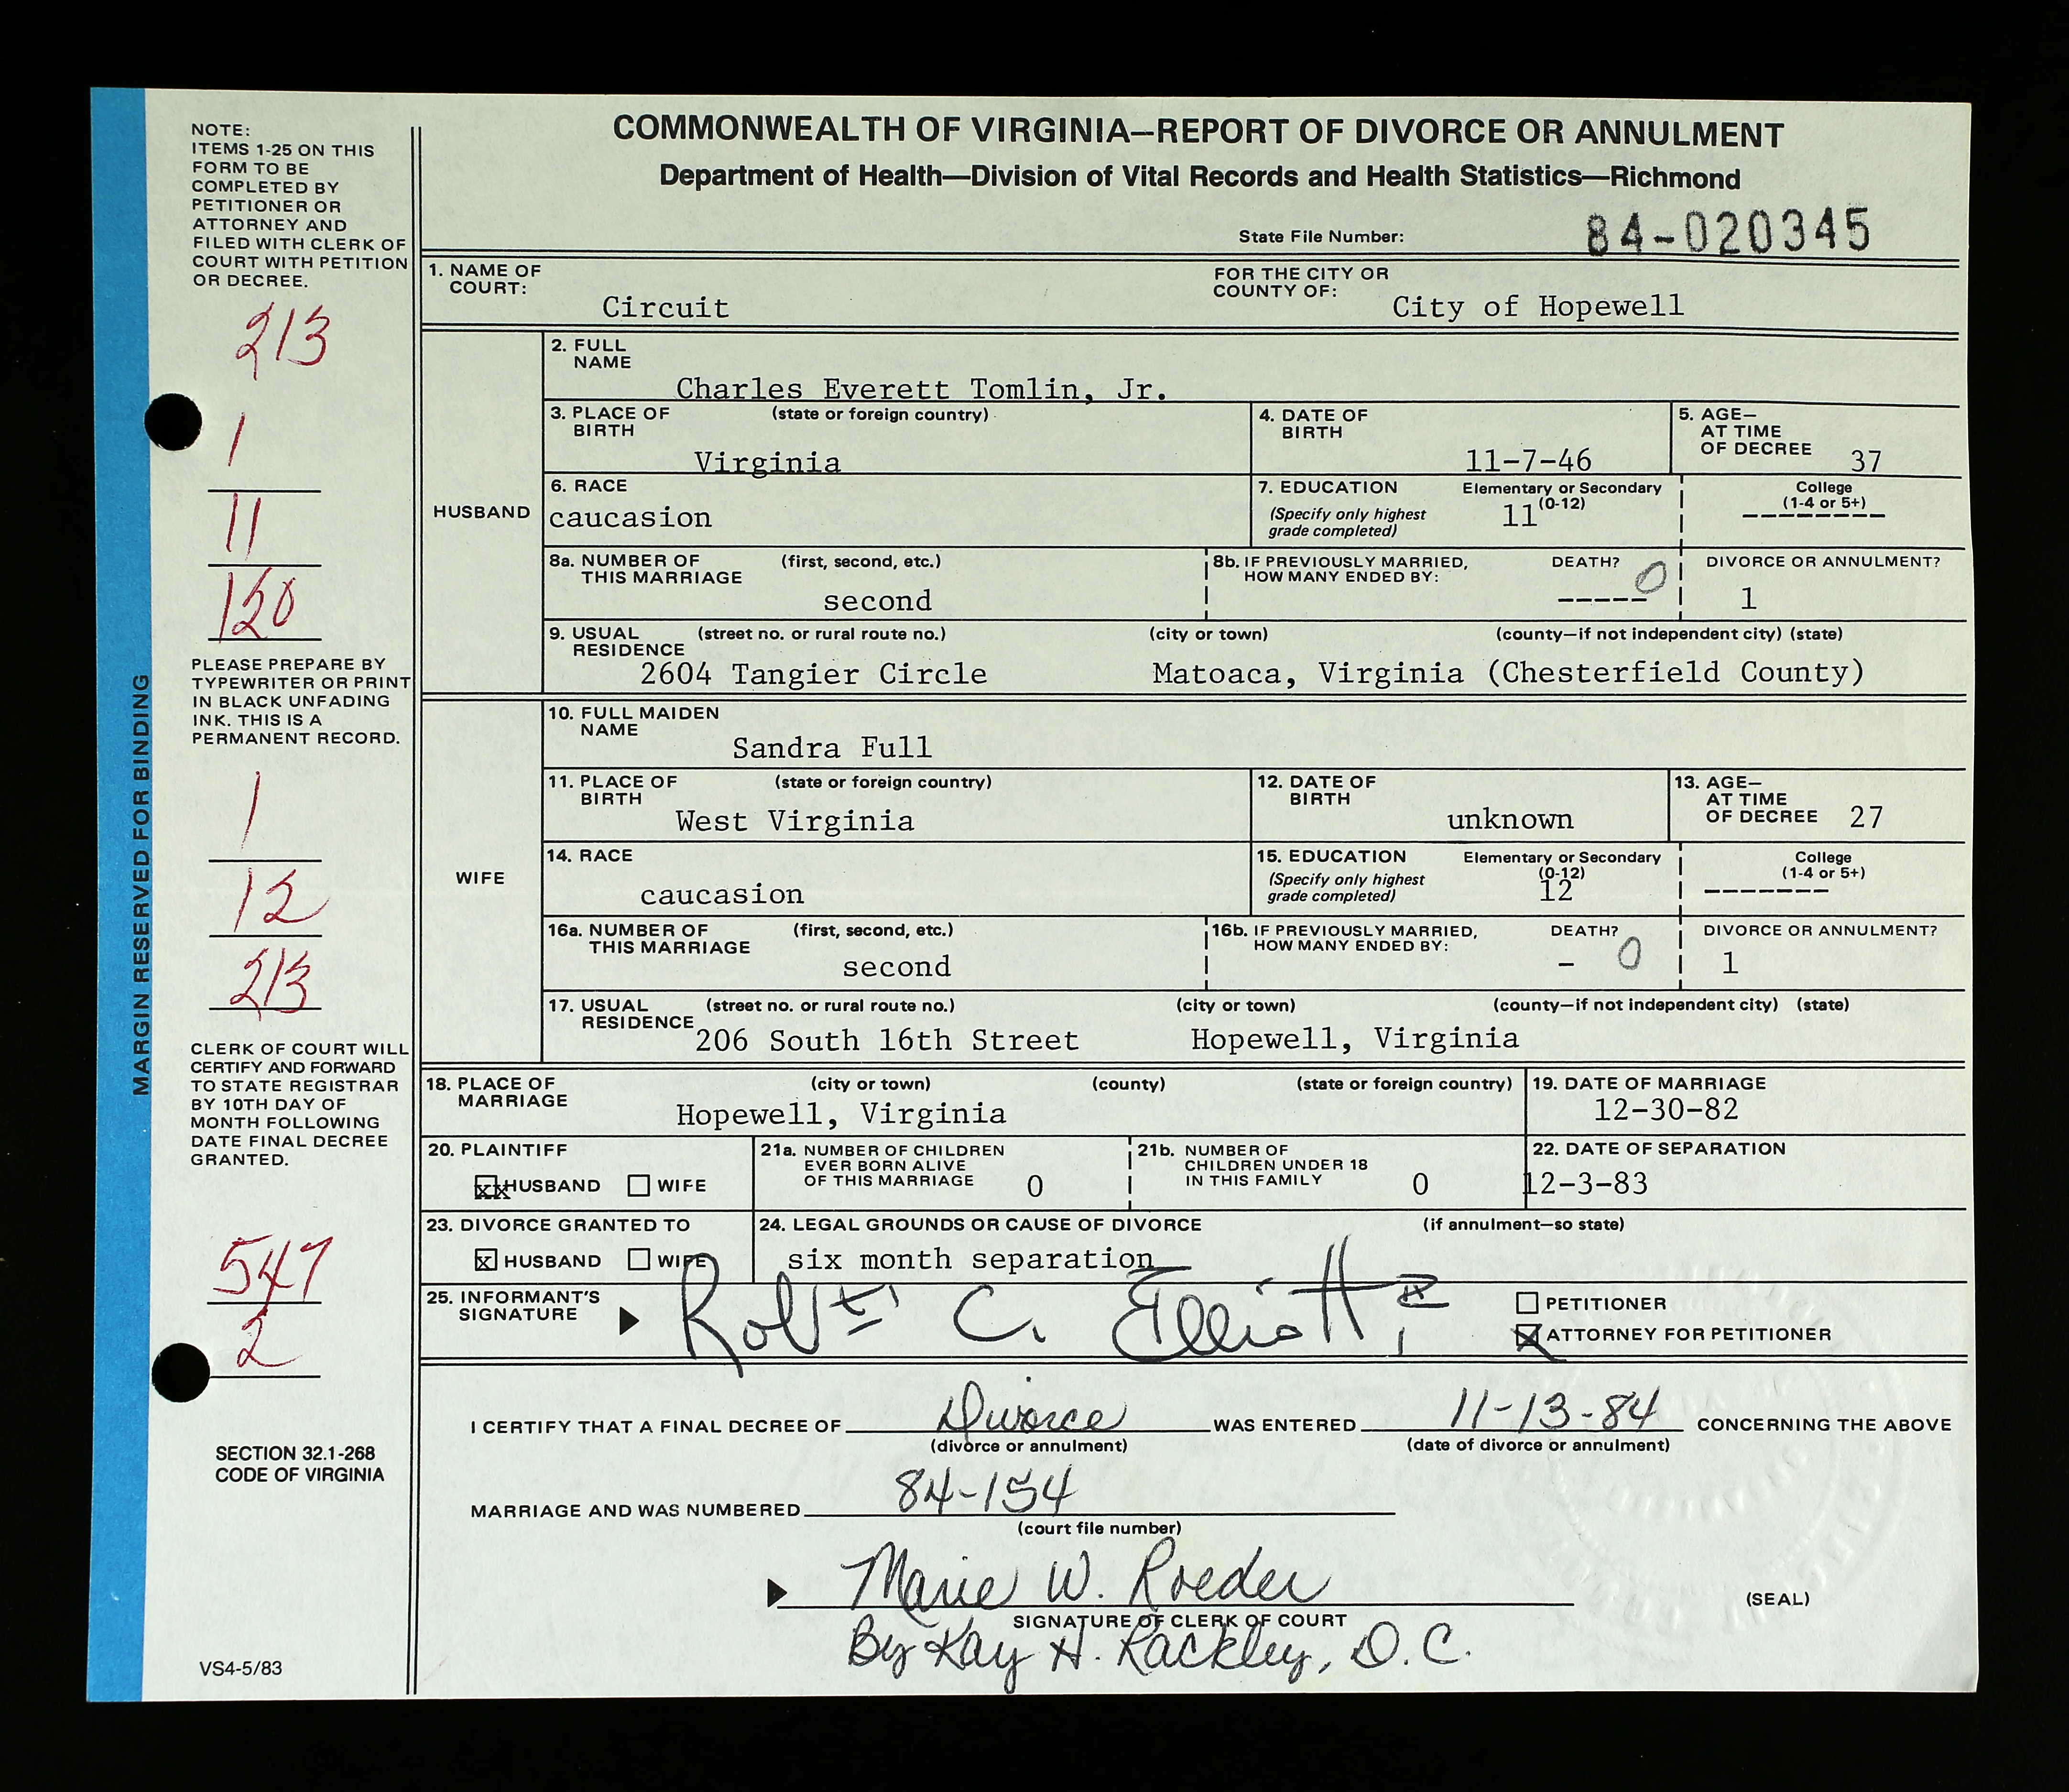 COMMONWEALTH OF VIRGINIA—REPORT OF DIVORCE OR ANNULMENT
Department of Health—Division of Vital Records and Health Statistics—Richmond
State File Number: 84-020345
NOTE:
ITEMS 1-25 ON THIS
FORM TO BE
COMPLETED BY
PETITIONER OR
ATTORNEY AND
FILED WITH CLERK OF
COURT WITH PETITION
OR DECREE.
213
1
11
120
PLEASE PREPARE BY
TYPEWRITER OR PRINT
IN BLACK UNFADING
INK. THIS IS A
PERMANENT RECORD.
1
12
213
CLERK OF COURT WILL
CERTIFY AND FORWARD
TO STATE REGISTRAR
BY 10TH DAY OF
MONTH FOLLOWING
DATE FINAL DECREE
GRANTED.
547
2
SECTION 32.1-268
CODE OF VIRGINIA
VS4-5/83
MARGIN RESERVED FOR BINDING
1. NAME OF COURT: Circuit
FOR THE CITY OR COUNTY OF: City of Hopewell
HUSBAND
2. FULL NAME
Charles Everett Tomlin, Jr.
3. PLACE OF BIRTH (state or foreign country)
Virginia
4. DATE OF BIRTH
11-7-46
5. AGE—AT TIME OF DECREE 37
6. RACE
caucasion
7. EDUCATION (Specify only highest grade completed)
Elementary or Secondary (0-12)
11
College (1-4 or 5+)
-------
8a. NUMBER OF THIS MARRIAGE (first, second, etc.)
second
8b. IF PREVIOUSLY MARRIED, HOW MANY ENDED BY:
DEATH?
----- 0
DIVORCE OR ANNULMENT?
1
9. USUAL RESIDENCE (street no. or rural route no.) (city or town) (county—if not independent city) (state)
2604 Tangier Circle Matoaca, Virginia (Chesterfield County)
WIFE
10. FULL MAIDEN NAME
Sandra Full
11. PLACE OF BIRTH (state or foreign country)
West Virginia
12. DATE OF BIRTH
unknown
13. AGE—AT TIME OF DECREE 27
14. RACE
caucasion
15. EDUCATION (Specify only highest grade completed)
Elementary or Secondary (0-12)
12
College (1-4 or 5+)
-------
16a. NUMBER OF THIS MARRIAGE (first, second, etc.)
second
16b. IF PREVIOUSLY MARRIED, HOW MANY ENDED BY:
DEATH?
- 0
DIVORCE OR ANNULMENT?
1
17. USUAL RESIDENCE (street no. or rural route no.) (city or town) (county—if not independent city) (state)
206 South 16th Street Hopewell, Virginia
18. PLACE OF MARRIAGE (city or town) (county) (state or foreign country)
Hopewell, Virginia
19. DATE OF MARRIAGE
12-30-82
20. PLAINTIFF
xx HUSBAND WIFE
21a. NUMBER OF CHILDREN EVER BORN ALIVE OF THIS MARRIAGE 0
21b. NUMBER OF CHILDREN UNDER 18 IN THIS FAMILY 0
22. DATE OF SEPARATION
12-3-83
23. DIVORCE GRANTED TO
x HUSBAND WIFE
24. LEGAL GROUNDS OR CAUSE OF DIVORCE (if annulment—so state)
six month separation
25. INFORMANT'S SIGNATURE
C. Elliott,
PETITIONER
X ATTORNEY FOR PETITIONER
I CERTIFY THAT A FINAL DECREE OF Divorce WAS ENTERED 11-13-84 CONCERNING THE ABOVE
(divorce or annulment) (date of divorce or annulment)
MARRIAGE AND WAS NUMBERED 84-154
(court file number)
Marie W. Roeder
SIGNATURE OF CLERK OF COURT
(SEAL)
By Kay H. Rackley, D.C.